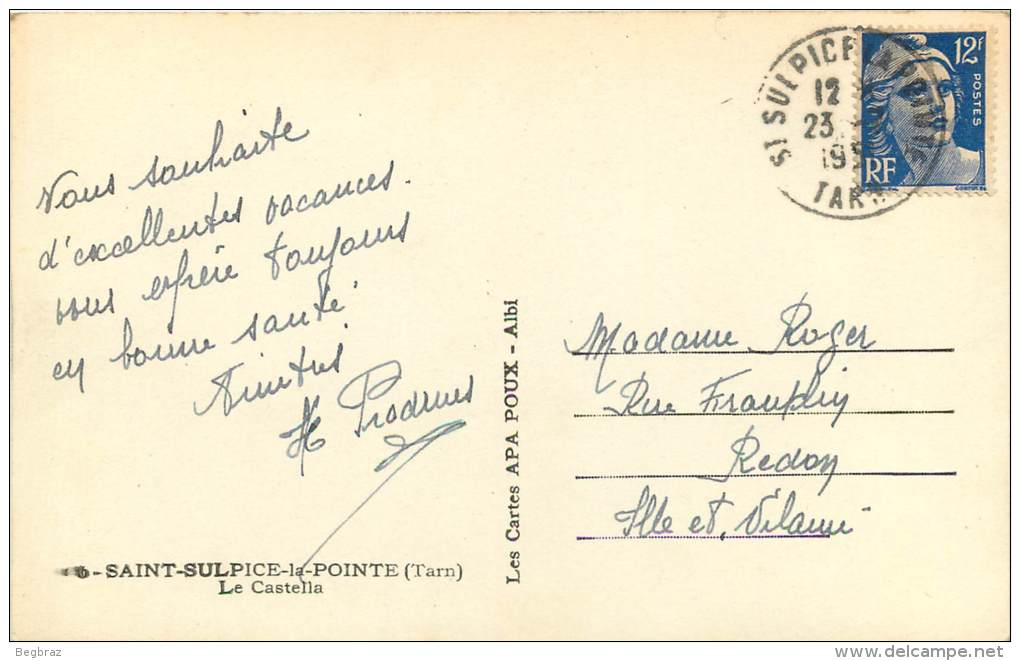 Vous souhaite
d'excellentes vacances.
vous espère toujours
en bonne santé
Amitiés
H Prodrues
6 - SAINT-SULPICE-la-POINTE (Tarn)
Le Castella
Les Cartes APA POUX - Albi
ST SULPICE LA POINTE
12
23
195
TARN
12F
POSTES
RF
Madame Roger
Rue Franklin
Redon
Ille et Vilaine
Begbraz
www.delcampe.net